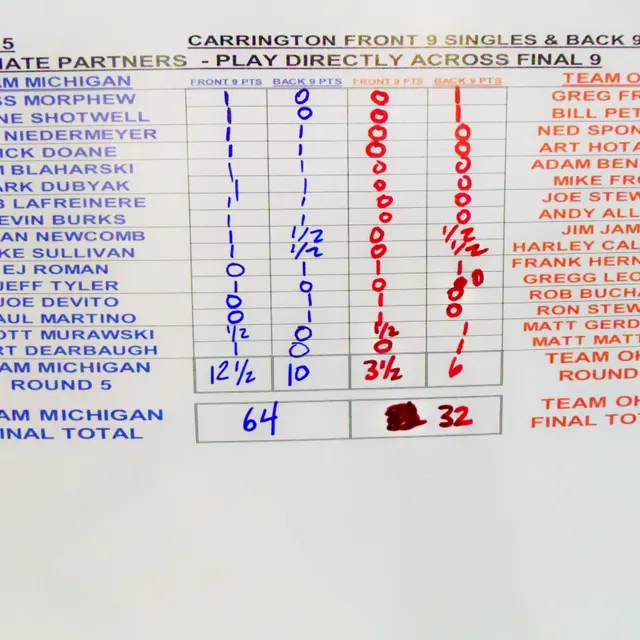 5 CARRINGTON FRONT 9 SINGLES & BACK 9
PARTNERS - PLAY DIRECTLY ACROSS FINAL 9
AM MICHIGAN FRONT 9 PTS BACK 9 PTS FRONT 9 PTS BACK 9 PTS TEAM O
SS MORPHEW 1 0 0 1 GREG FR
NE SHOTWELL 1 0 0 1 BILL PET
NIEDERMEYER 1 1 0 0 NED SPON
ICK DOANE 1 1 0 0 ART HOTA
M BLAHARSKI 1 1 0 0 ADAM BEN
ARK DUBYAK 1 1 0 0 MIKE FRO
B LAFREINERE 1 1 0 0 JOE STEW
EVIN BURKS 1 1 0 0 ANDY ALL
AN NEWCOMB 1 1/2 0 1/2 JIM JAM
KE SULLIVAN 1 1/2 0 1/2 HARLEY CAL
EJ ROMAN 0 1 1 1 FRANK HERN
JEFF TYLER 1 0 1 0 GREGG LEO
JOE DEVITO 0 1 1 0 ROB BUCHA
AUL MARTINO 0 1 1 0 RON STEW
OTT MURAWSKI 1/2 0 1/2 1 MATT GERD
RT DEARBAUGH 1 0 0 1 MATT MATT
AM MICHIGAN ROUND 5 12 1/2 10 3 1/2 6 TEAM OH ROUND
AM MICHIGAN INAL TOTAL 64 32 TEAM OH FINAL TO